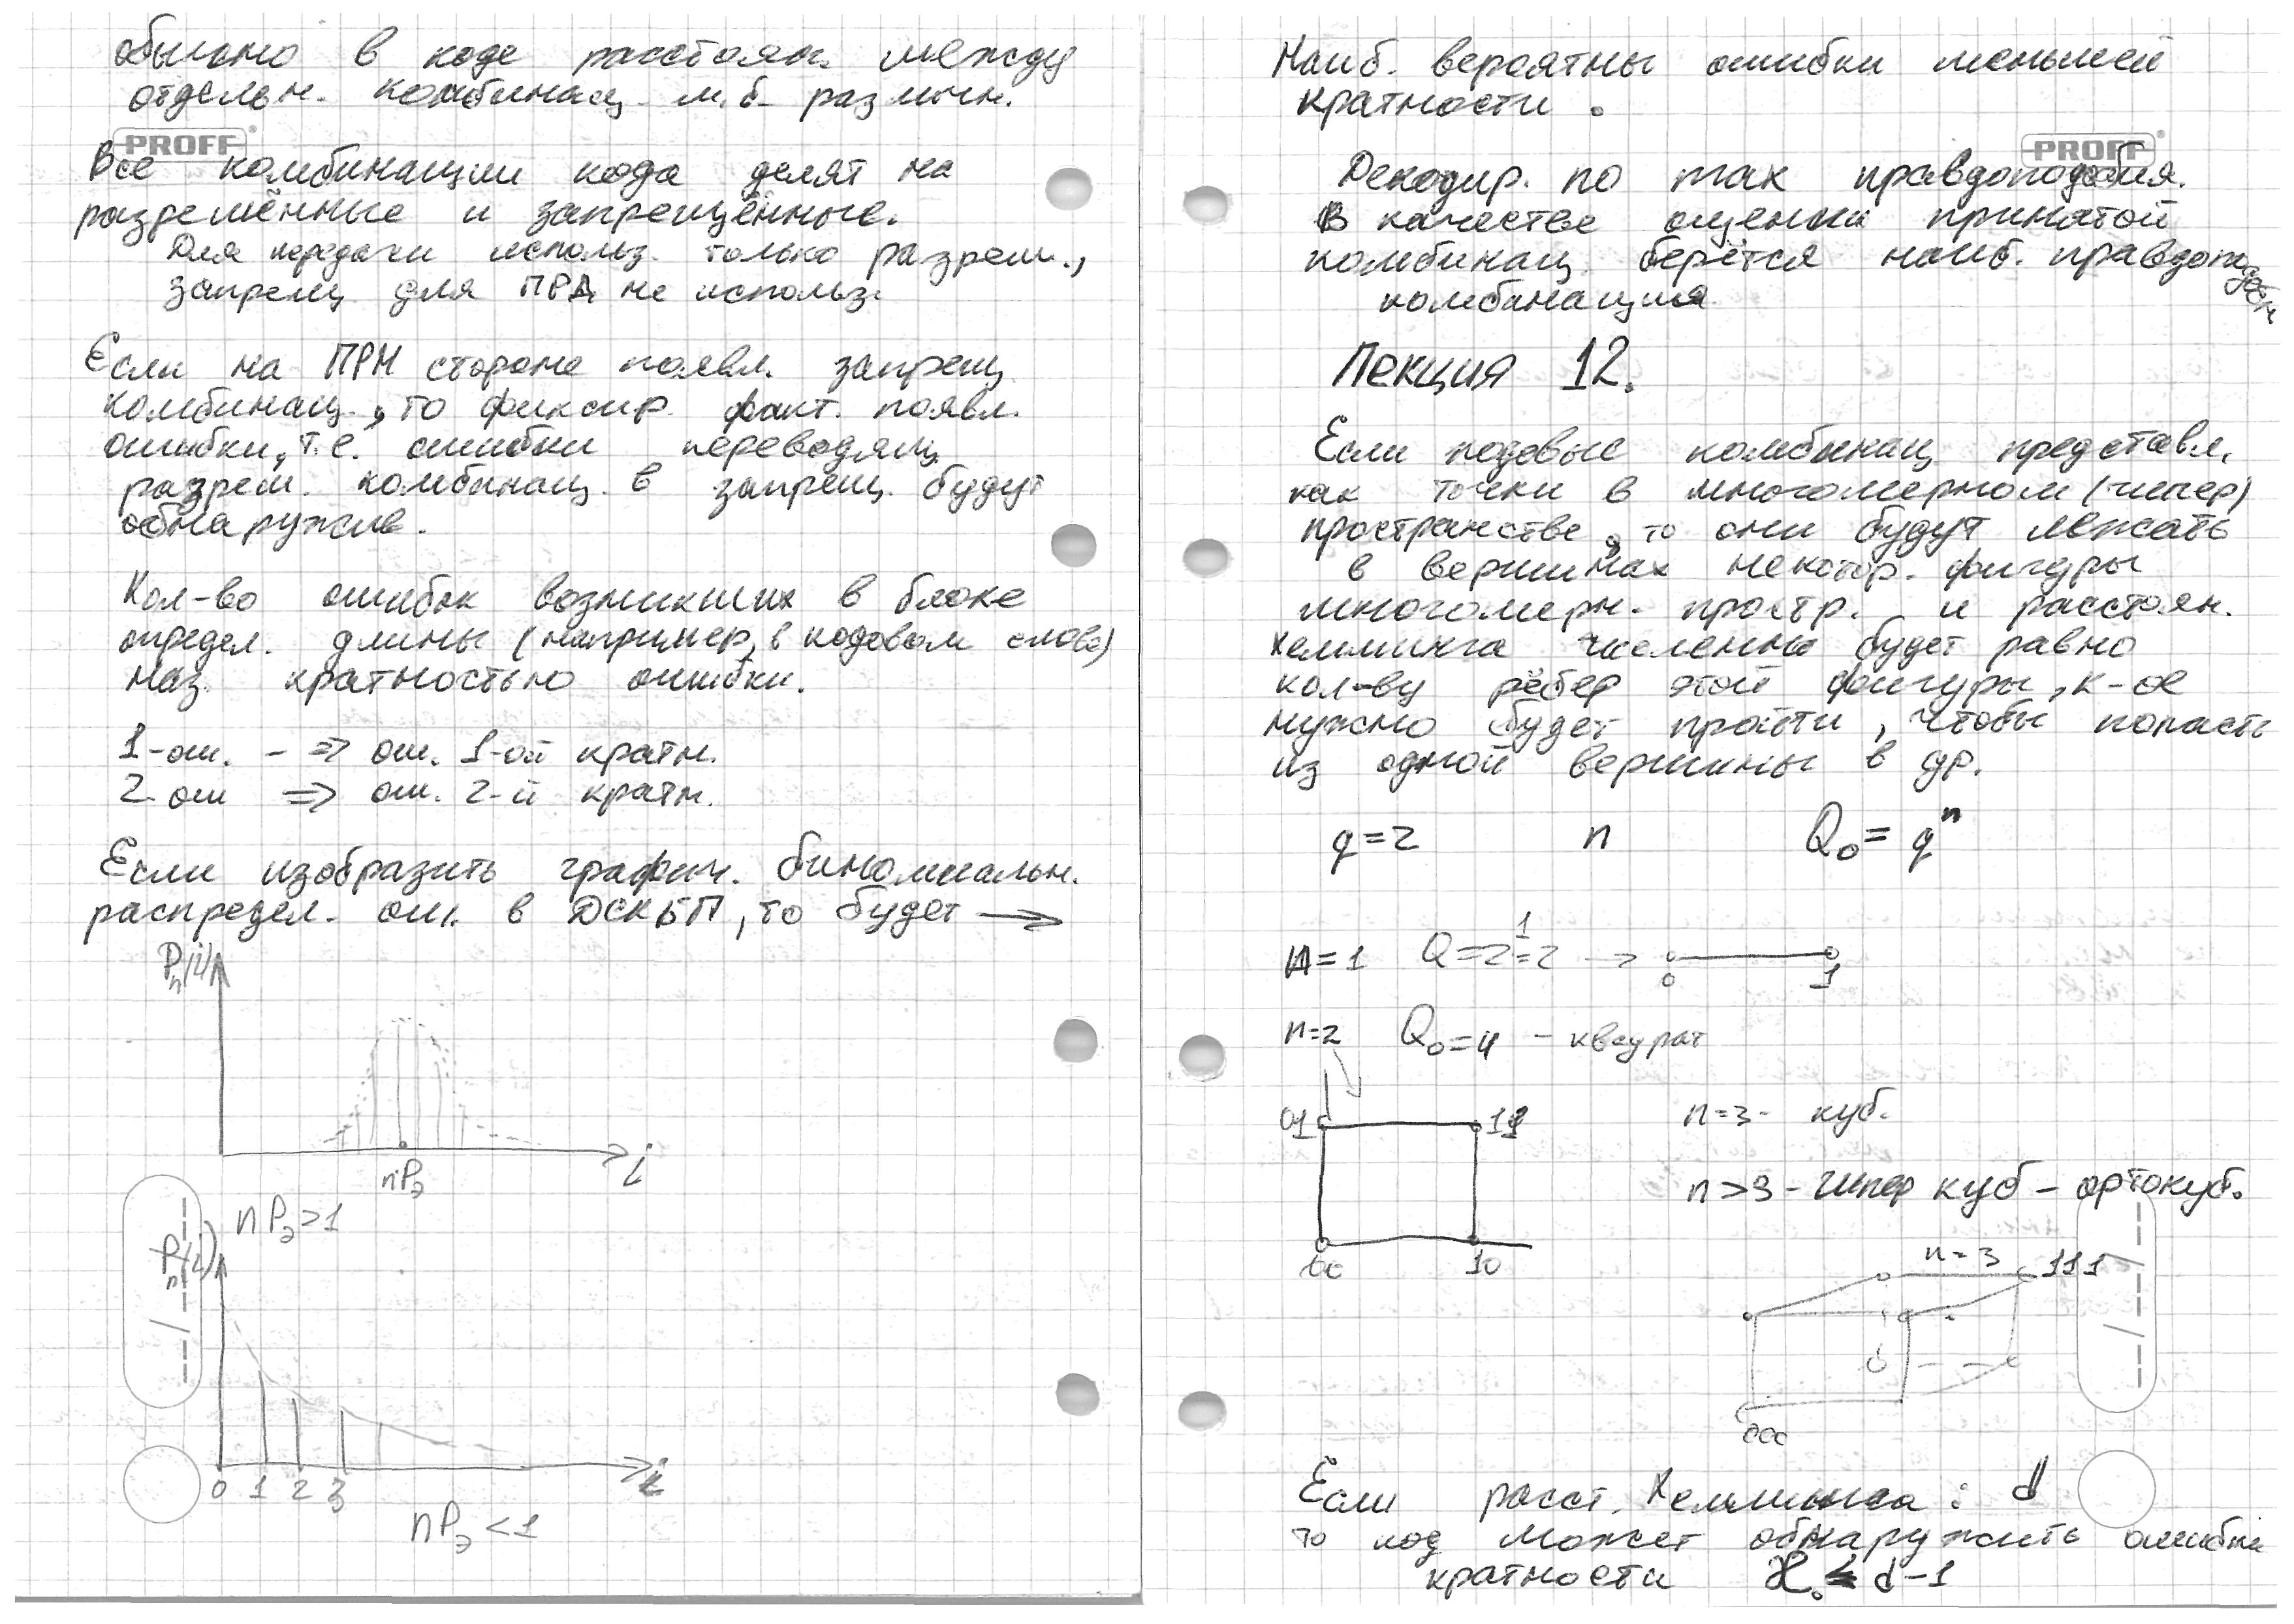 обычно в коде расстоян. между
отдельн. комбинац. м.б. различн.
PROFF
Все комбинации кода делят на
разрешённые и запрещённые.
Для передачи использ. только разреш.,
запрещ для ПРД не использ.
Если на ПРМ стороне появл. запрещ
комбинац., то фиксир. факт. появл.
ошибки, т.е. ошибки переводящ
разреш. комбинац. в запрещ. будут
обнаружив.
Кол-во ошибок возникших в блоке
определ. длины (например, в кодовом слове)
наз. кратностью ошибки.
1-ош. - => ош. 1-ой кратн.
2-ош => ош. 2-й кратн.
Если изобразить график. биномиальн.
распредел. ош. в ДСКБП, то будет →
Pn(i)
nPэ
i
nPэ>1
Pn(i)
0 1 2 3
i
nPэ<1
Наиб. вероятны ошибки меньшей
кратности.
PROFF
Декодир. по max правдоподобия.
В качестве оценки принятой
комбинац. берётся наиб. правдоподобн
комбинация
Лекция 12.
Если кодовые комбинац. представл.
как точки в многомерном (гипер)
пространстве, то они будут лежать
в вершинах некотор. фигуры
многомерн. простр. и расстоян.
Хемминга численно будет равно
кол-ву рёбер этой фигуры, к-ое
нужно будет пройти, чтобы попасть
из одной вершины в др.
q=2 n Q₀=qⁿ
n=1 Q=2¹=2 →
0 1
n=2 Q₀=4 - квадрат
01 11
n=3 - куб.
n>3 - Гипер куб - ортокуб.
00 10
n=3
111
000
Если расст. Хемминга: d
то код может обнаружить ошибки
кратности ≤ d-1